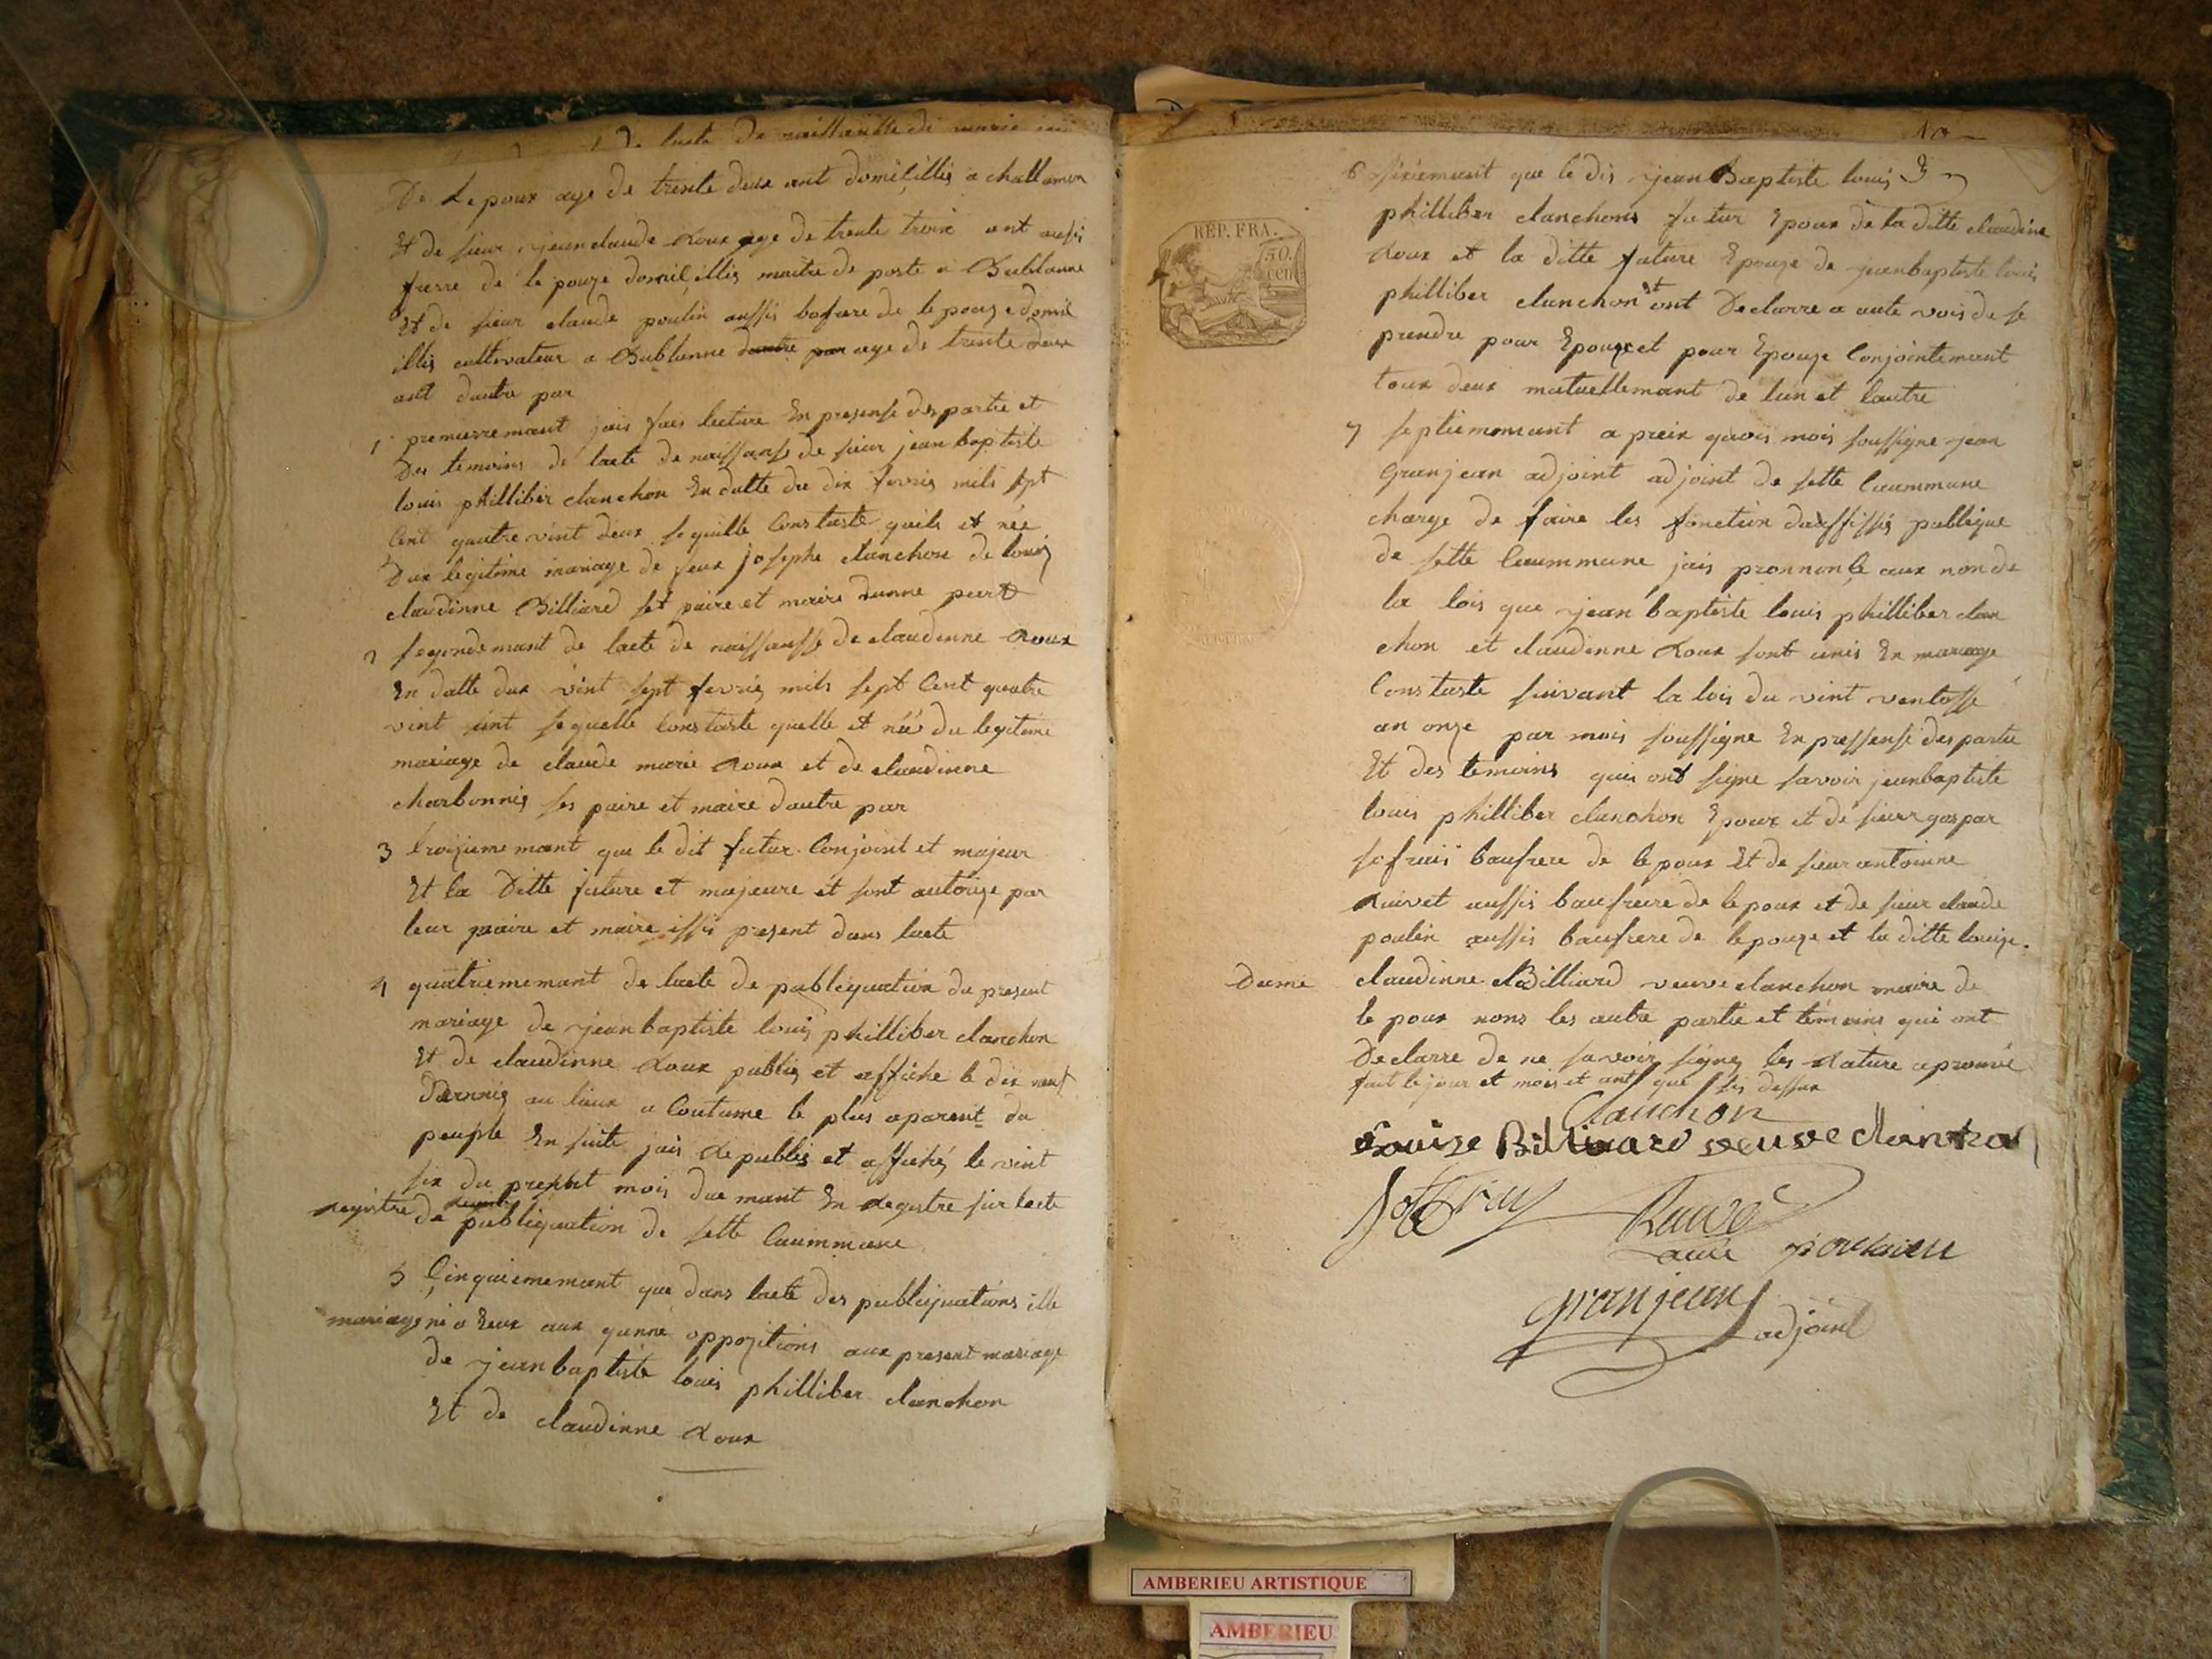 De Lepoux age de trente deux ant domiçillies a challamon
Et de sieur jean claude Roux age de trente troix ant aussi
frerre de le pouze domiçillies maitre de poste a Bublanne
Et de sieur claude poulin aussis bofrere de le pouze domil
illies cultivateur a Bublanne dautre par age de trente deux
ant dautre par
1 premierremant jais fais lecture En presense des partie et
Des temoins de lacte de naissanse de sieur jean baptiste
louis philliber clanchon En datte du dix fevrie mils sept
Cent quatre vint deux sequille Constaste quils et née
Dux legitime mariage de feux josephe clanchon de louis
claudinne Billiard set paire et maire dunne part
2 segondemant de lacte de naissansse de claudinne Roux
En datte dux vint sept fevrie mils sept Cent quatre
vint sint sequelle Constaste quelle et née du legitime
mariage de claude marie Roux et de claudinne
charbonnie ses paire et maire dautre par
3 troizieme mant que le dit futur Conjoint et majeur
Et la Ditte future et majeure et sont autorize par
leur paire et maire issis present dans lacte
4 quatriememant de lacte de publiquation du present
mariage de jean baptiste louis philliber clanchon
Et de claudinne Roux publies et affiche le dix neuf
Dernnie au lieux a Coutume le plus aparent du
peuple En suite jais Republies et affiches le vint
six du present mois dument En Registre sur lacte
registre De publiquation de sette Caummune
5 Çinquiememant que dans lacte des publiquations ille
mariage ni a Eeux aux qunne oppozitions aux present mariage
de jean baptiste louis philliber clanchon
Et de claudinne Roux
REP. FRA.
50. cen
6 sixiemant que le dis jean Baptiste louis
philliber clanchons futur Epoux de la ditte claudine
Roux et la ditte future Epouze de jean baptiste louis
philliber clanchon et ont Declarre a aute vois de se
prendre pour Epoux et pour Epouze Conjointemant
tous deux mutuellemant de lun et lautre
7 septiememant a preix quois mois soussigne jean
Granjean adjoint adjoint de sette Caummune
charge de faire les fonction dauffissis publique
de sette Caummune jais pronnonçe aux non de
la lois que jean baptiste louis philliber clan
chon et claudinne Roux sont unis En mariage
Constaste suivant la lois du vint ventosse
an onze par mois soussigne En pressense des partie
Et des temoins quis ont signe savoir jeanbaptiste
louis philliber clanchon Epoux et de sieur gaspar
sofrais baufrere de lepoux Et de sieur antoinne
Ruivet aussis baufreire de lepoux et de sieur claude
poulin aussis baufrere de lepouze et la ditte louize
Dame claudinne Billiard veuve clanchon maire de
le poux nons les autre partie et temoins qui ont
Declarre de ne savoir signe les Rature aprouvé
fait le jour et mois et ant que sis dessux
Clanchon
Louize Billiard veuve clanchon
Ruivet
poulain
granjean
adjoint
AMBERIEU ARTISTIQUE
AMBERIEU